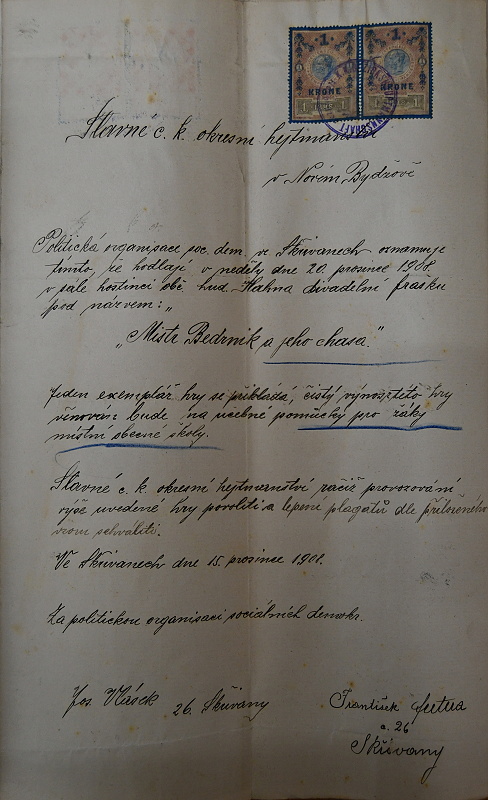 1 1
KRONE KRONE
1 1 1 1
Slavné c. k. okresní hejtmanství
v Novém Bydžově
Politická organisace soc. dem. ve Skřivanech oznamuje
tímto, že hodlají v neděly dne 20. prosince 1908.
v sále hostinci obě. hud. Hahna divadelní frašku
pod názvem:„
„Mistr Bedrník a jeho chasa.“
Jeden exemplář hry se přikládá, čistý výnos této hry
věnován bude na učebné pomůcky pro žáky
místní obecné školy.
Slavné c. k. okresní hejtmanství račiž provozování
výše uvedené hry povoliti a lepení plagátů dle přiloženého
vzoru schváliti.
Ve Skřivanech dne 15. prosince 1908.
Za politickou organisaci sociálních demokr.
Jos. Vlásek 26. Skřivany
František
č. 26
Skřivany